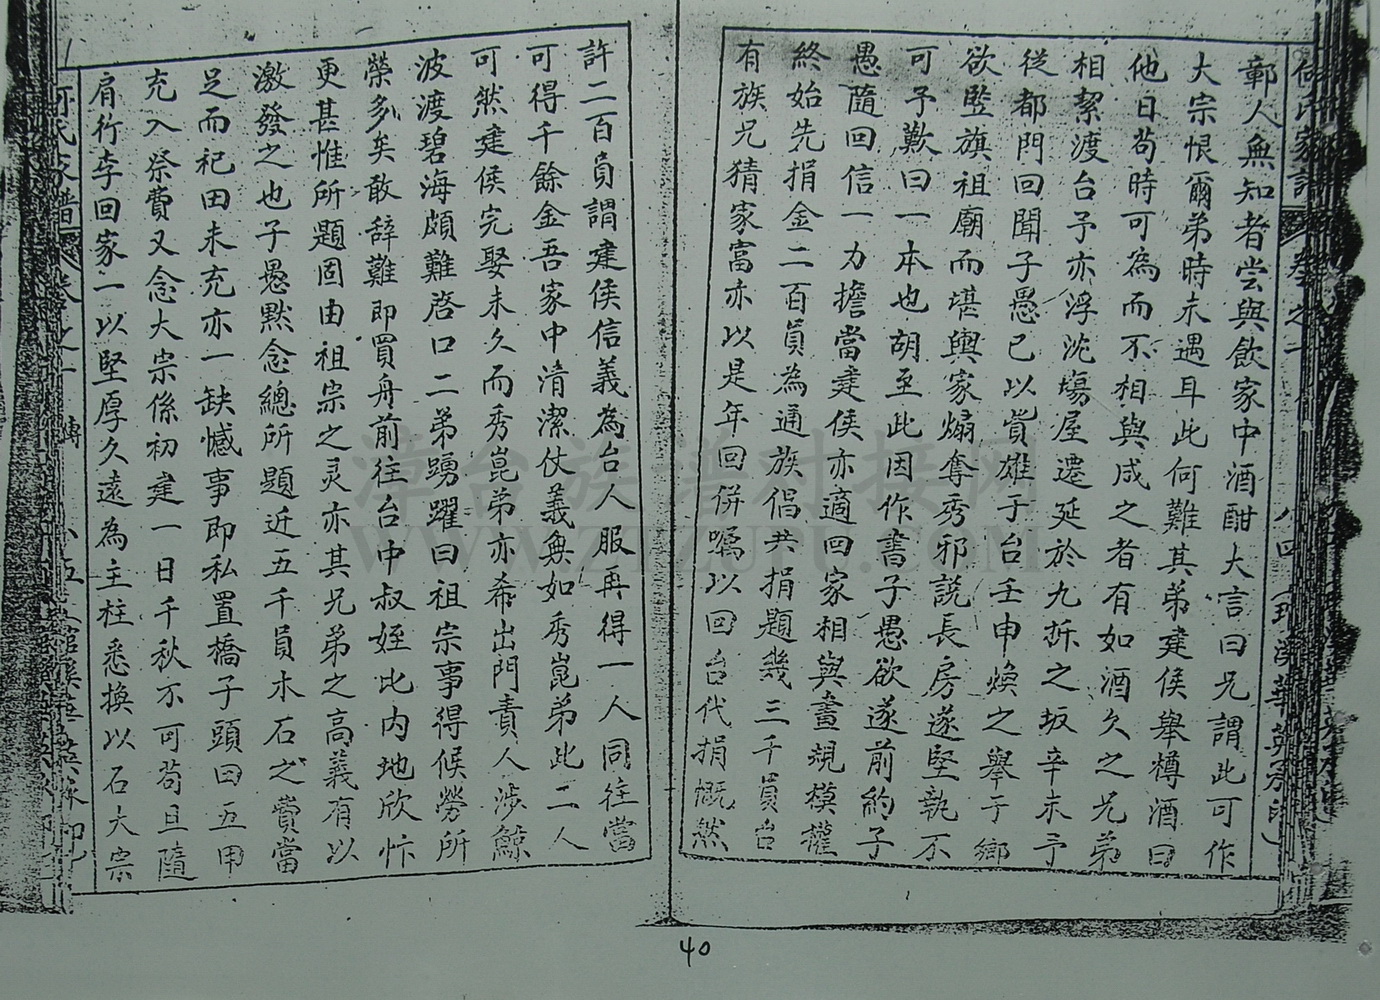 何氏家譜 卷之一
彰人無知者嘗與飲家中酒酣大言曰兄謂此可作
大宗恨爾弟時未遇耳此何難其弟建侯舉樽酒曰
他日苟時可為而不相與咸之者有如酒久之兄弟
相絜渡台予亦浮沈塲屋遷延於九折之坂辛未予
從都門回聞子愚已以貲雄于台壬申煥之舉于鄉
欲竪旗祖廟而堪輿家煽奪秀邪說長房遂堅執不
可予歎曰一本也胡至此因作書子愚欲遂前約子
愚隨回信一力擔當建侯亦適回家相與畫規模權
終始先捐金二百員為通族倡共捐題幾三千員台
有族兄猜家富亦以是年回併囑以回台代捐慨然
許二百員謂建侯信義為台人服再得一人同往當
可得千餘金吾家中清潔仗義無如秀崑弟此二人
可然建侯完娶未久而秀崑弟亦希出門責人涉鯨
波渡碧海頗難啓口二弟踴躍曰祖宗事得候勞所
榮多矣敢辞難即買舟前往台中叔姪比内地欣忭
更甚惟所題固由祖宗之灵亦其兄弟之高義有以
激發之也子愚黙念總所題近五千員木石之費當
足而祀田未充亦一缺憾事即私置橋子頭曰五甲
充入祭費又念大宗係初建一日千秋不可苟且隨
肩行李回家一以堅厚久遠為主柱悉換以石大宗
何氏家譜 卷之一 傳
漳台族譜对接网
WWW.ZTZUPU.COM
40